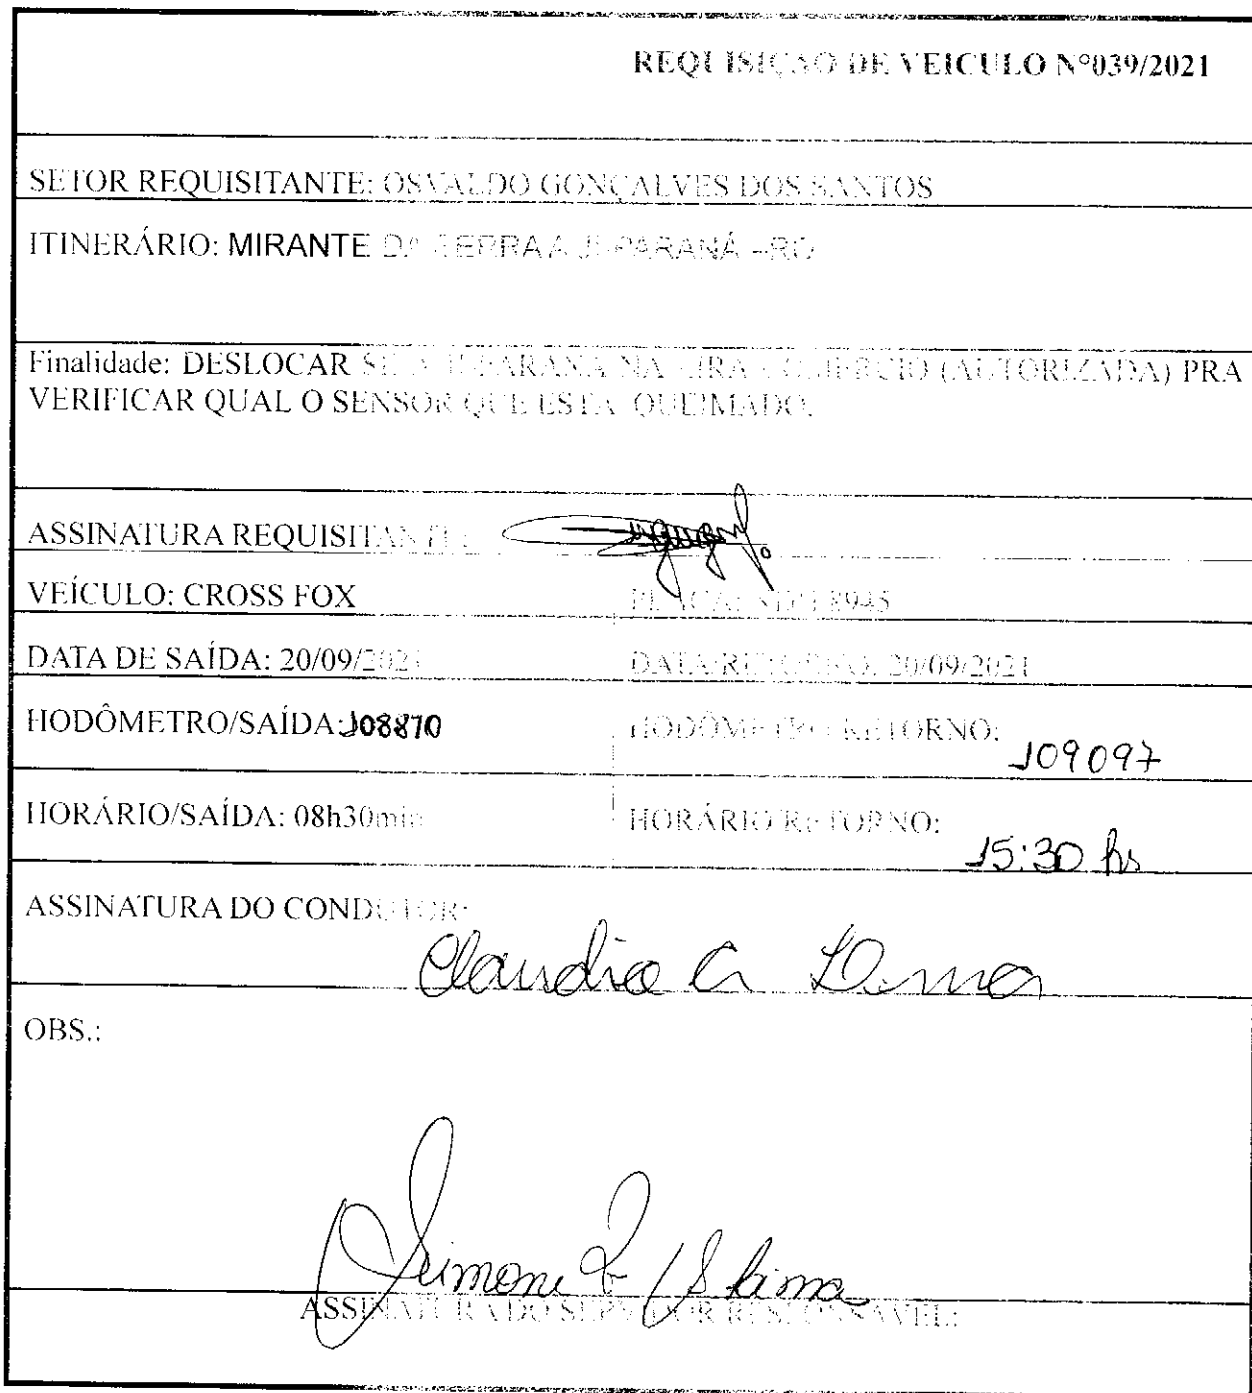 REQUISIÇÃO DE VEICULO Nº039/2021
SETOR REQUISITANTE: OSVALDO GONÇALVES DOS SANTOS
ITINERÁRIO: MIRANTE DA SERRA A JI-PARANÁ –RO
Finalidade: DESLOCAR SE A JI-PARANA NA COMERCIO (AUTORIZADA) PRA
VERIFICAR QUAL O SENSOR QUE ESTA QUEIMADO.
ASSINATURA REQUISITANTE:
VEÍCULO: CROSS FOX PLACA: 8945
DATA DE SAÍDA: 20/09/2021 DATA RETORNO: 20/09/2021
HODÔMETRO/SAÍDA: 108870 HODÔMETRO RETORNO: 109097
HORÁRIO/SAÍDA: 08h30min HORÁRIO RETORNO: 15:30 hs
ASSINATURA DO CONDUTOR:
Claudio
OBS.:
Simone
ASSINATURA DO SERVIDOR RESPONSAVEL: